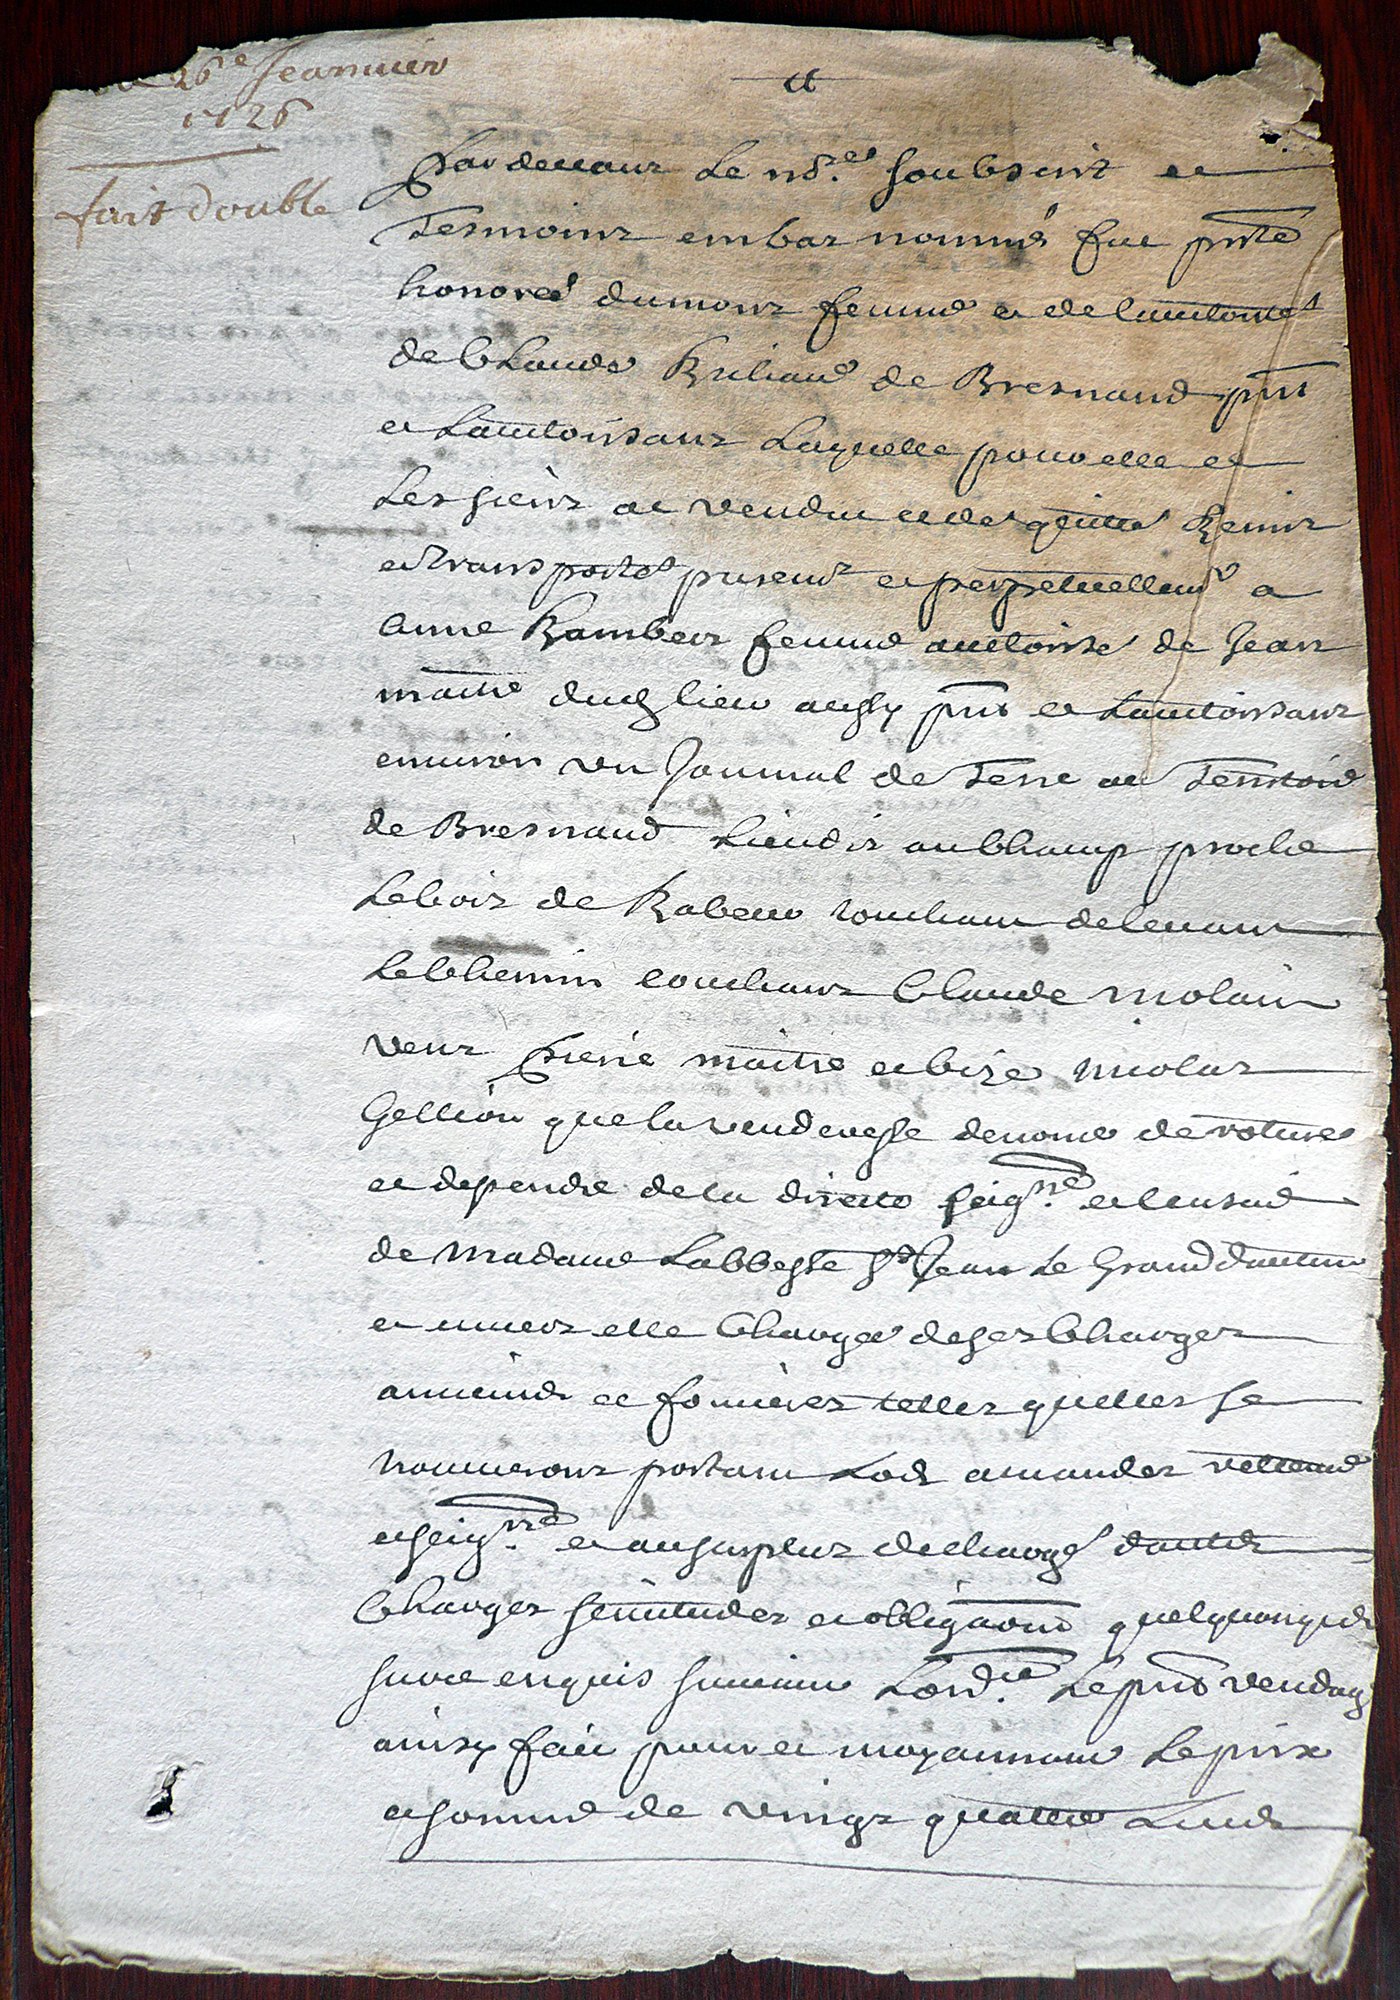 26e Jeanvier
1726
fait double
Pardevant Le nore soubsint et
Tesmoins embas nommés fut pnte
honoree dumont femme et de lauctorité
de Claude de Bresnand pnt
et Lauctorisant Laquelle pour elle et
Les siens at vendu cede quitté Remis
et transporté presentt et perpetuellemt a
Anne Rambert femme auctorisé de Jean
maitre dud lieu aussy pnt et Lauctorisant
environ un Journal de Terre au Territoire
de Bresnand Lieudit au Champ proche
Lebois de touchant de levant
Le Chemin couchant Claude molain
vent Pierre maitre et bize nicolas
Gellion que la venderesse denome de roture
et dependre de la directe seigrie et censive
de Madame Labbesse St Jean Le Grand dautun
et envers elle Chargee de ses Charges
annuelles et foncieres telles quelles se
trouveront portant Lods amandes retenue
et seigrie et au surplus decharge dautres
Charges servitudes et obligaons quelquonques
sur ce enquis suivant Lordce Le pnt vendage
ainsy fait pour et moyannant Le prix
et somme de vingt quattre Livres